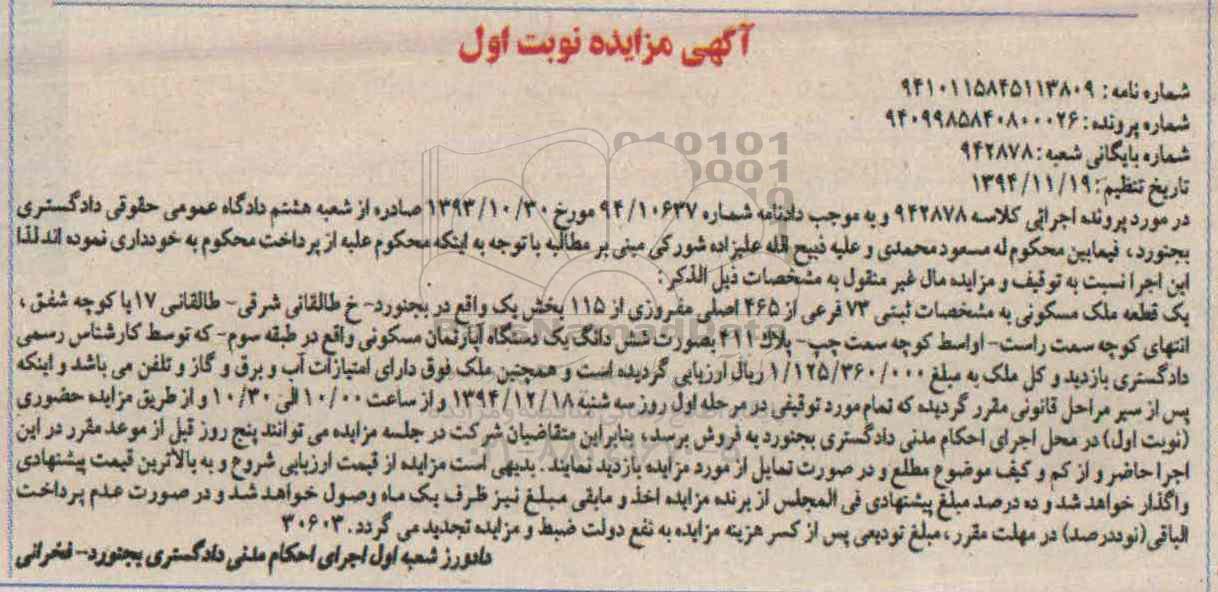 آگهی مزایده نوبت اول
شماره نامه: ۹۴۱۰۱۱۵۸۴۵۱۱۳۸۰۹
شماره پرونده: ۹۴۰۹۹۸۵۸۴۰۸۰۰۰۲۶
شماره بایگانی شعبه: ۹۴۲۸۷۸
تاریخ تنظیم: ۱۳۹۴/۱۱/۱۹
در مورد پرونده اجرائی کلاسه ۹۴۲۸۷۸ و به موجب دادنامه شماره ۹۴/۱۰۶۳۷ مورخ ۱۳۹۳/۱۰/۳۰ صادره از شعبه هشتم دادگاه عمومی حقوقی دادگستری
بجنورد، فیمابین محکوم له مسعود محمدی و علیه ذبیح الله علیزاده شورکی مبنی بر مطالبه با توجه به اینکه محکوم علیه از پرداخت محکوم به خودداری نموده اند لذا
این اجرا نسبت به توقیف و مزایده مال غیر منقول به مشخصات ذیل الذکر:
یک قطعه ملک مسکونی به مشخصات ثبتی ۷۳ فرعی از ۴۶۵ اصلی مفروزی از ۱۱۵ بخش یک واقع در بجنورد- خ طالقانی شرقی- طالقانی ۱۷ یا کوچه شفق،
انتهای کوچه سمت راست- اواسط کوچه سمت چپ- پلاک ۴۱۱ بصورت شش دانگ یک دستگاه آپارتمان مسکونی واقع در طبقه سوم- که توسط کارشناس رسمی
دادگستری بازدید و کل ملک به مبلغ ۱/۱۲۵/۳۶۰/۰۰۰ ریال ارزیابی گردیده است و همچنین ملک فوق دارای امتیازات آب و برق و گاز و تلفن می باشد و اینکه
پس از سیر مراحل قانونی مقرر گردید که تمام مورد توقیفی در مرحله اول روز سه شنبه ۱۳۹۴/۱۲/۱۸ و از ساعت ۱۰/۰۰ الی ۱۰/۳۰ و از طریق مزایده حضوری
(نوبت اول) در محل اجرای احکام مدنی دادگستری بجنورد به فروش برسد، بنابراین متقاضیان شرکت در جلسه مزایده می توانند پنج روز قبل از موعد مقرر در این
اجرا حاضر و از کم و کیف موضوع مطلع و در صورت تمایل از مورد مزایده بازدید نمایند. بدیهی است مزایده از قیمت ارزیابی شروع و به بالاترین قیمت پیشنهادی
واگذار خواهد شد و ده درصد مبلغ پیشنهادی فی المجلس از برنده مزایده اخذ و مابقی مبلغ نیز ظرف یک ماه وصول خواهد شد و در صورت عدم پرداخت
الباقی (نوددرصد) در مهلت مقرر، مبلغ تودیعی پس از کسر هزینه مزایده به نفع دولت ضبط و مزایده تجدید می گردد. ۳۰۶۰۳
دادورز شعبه اول اجرای احکام مدنی دادگستری بجنورد- فخرانی